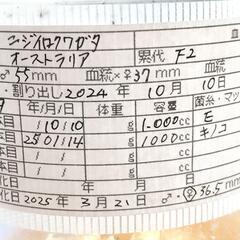 ニジイロクワガタ 血
オーストラリア 累代 F2
♂55mm 血統×♀37mm
・割り出し2024年10月10日
タ 年/月/日 体重 容量 菌糸・マッ
本目 10/10 g 1.000cc E
本目 25 01/14 g 1000cc キノコ
本目 / / g cc
化日 年 月 日
化日 2025年3月21日 ♂・♀36.5mm